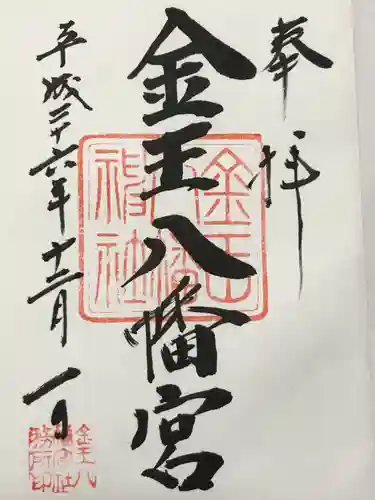 奉拝
金王八幡宮
平成二十六年十二月一日
金王八幡神社
金王八
幡宮社
務所印